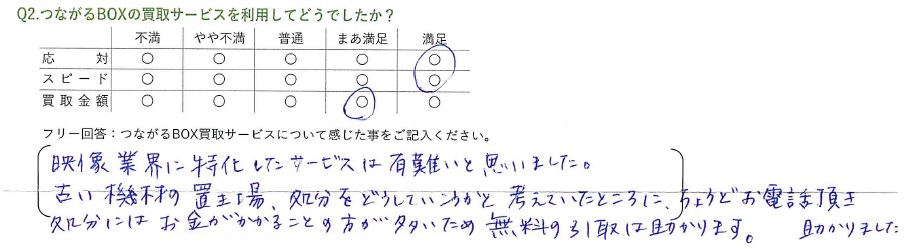 Q2.つながるBOXの買取サービスを利用してどうでしたか？
不満 やや不満 普通 まあ満足 満足
応対 ○ ○ ○ ○ ○
スピード ○ ○ ○ ○ ○
買取金額 ○ ○ ○ ○ ○
フリー回答：つながるBOX買取サービスについて感じた事をご記入ください。
映像業界に特化したサービスは有難いと思いました。
古い機材の置き場、処分をどうしていこうかと考えていたところに、ちょうどお電話頂き
処分にはお金がかかることの方が多いため無料の引取は助かります。 助かりました